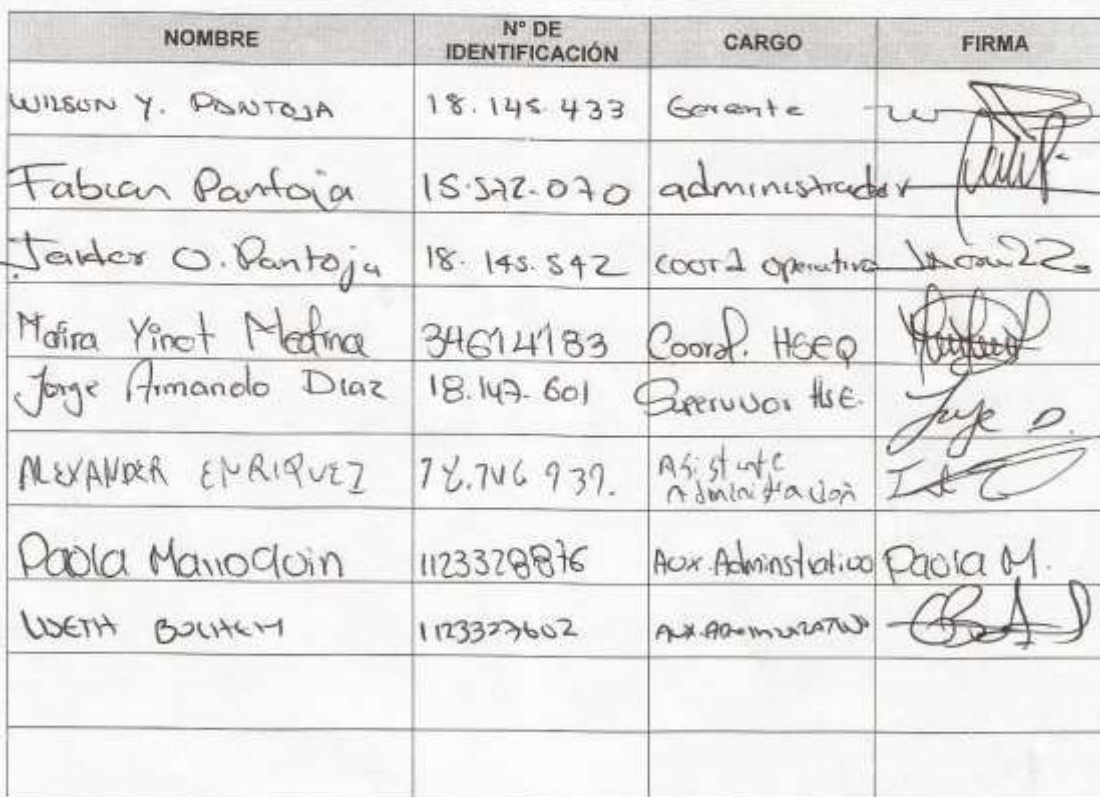 NOMBRE N° DE IDENTIFICACIÓN CARGO FIRMA
WILSON Y. PANTOJA 18.145.433 Gerente
Fabian Pantoja 15.572.070 administrador
Jaider O. Pantoja 18.145.542 coord operativo
Maira Yinet Medina 34614183 Coord. HSEQ
Jorge Armando Diaz 18.147.601 Supervisor HSE. Jorge D.
ALEXANDER ENRIQUEZ Asistente Administración
Paola Marroquin 1123328876 Aux. Adminstrativo Paola M.
1123327602